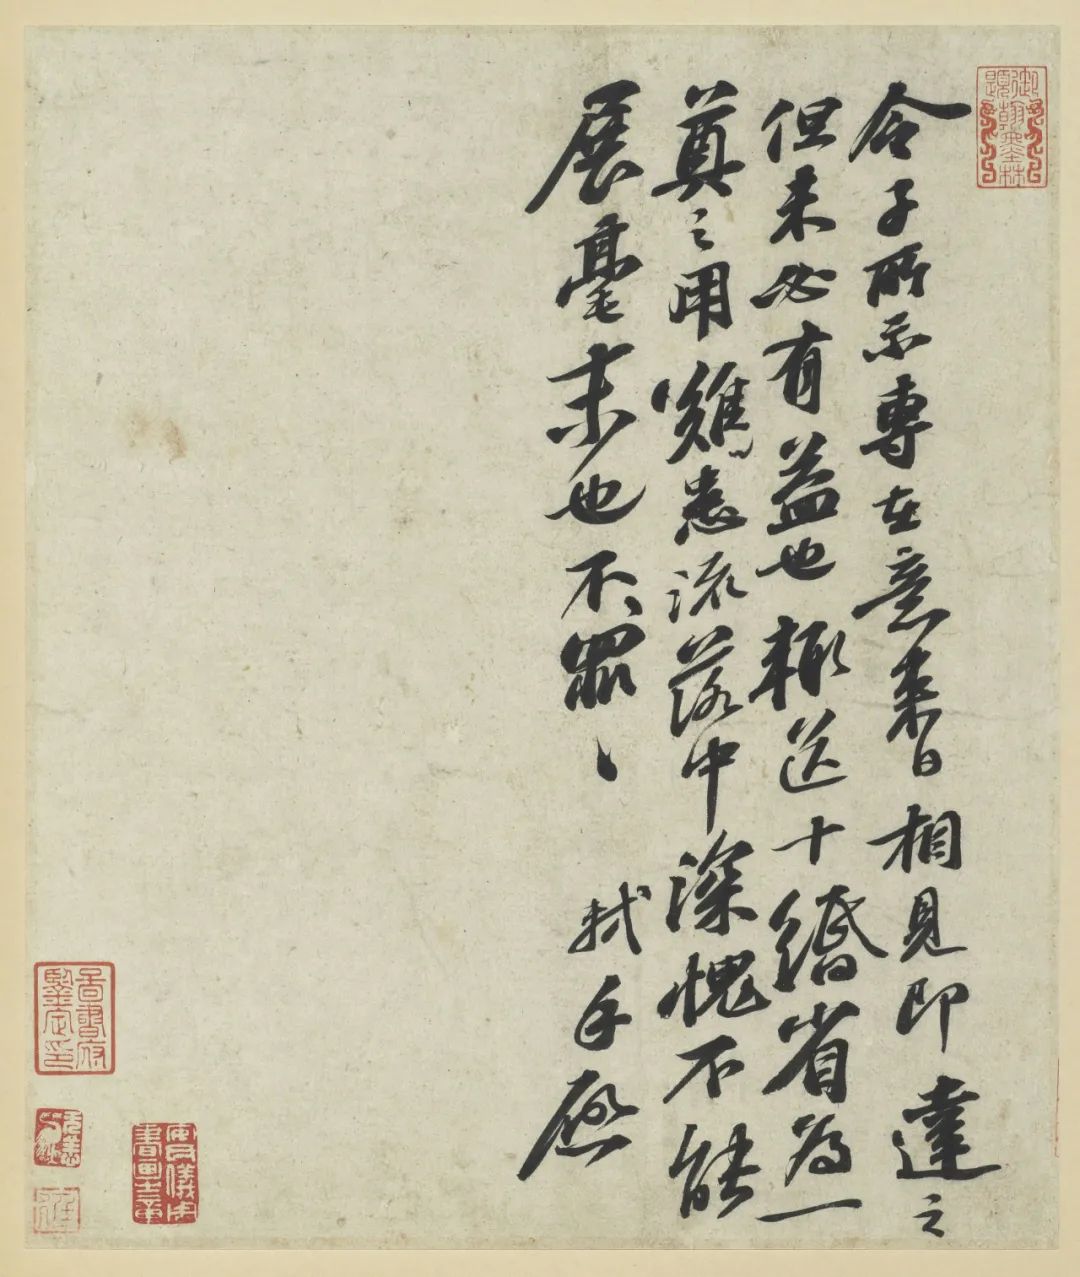 令子所示專在意來日相見即達之
但未必有益也輒送十緡省為一
奠之用難患流落中深愧不能
展毫末也不罪〻
軾手啟
安儀周書畫之章